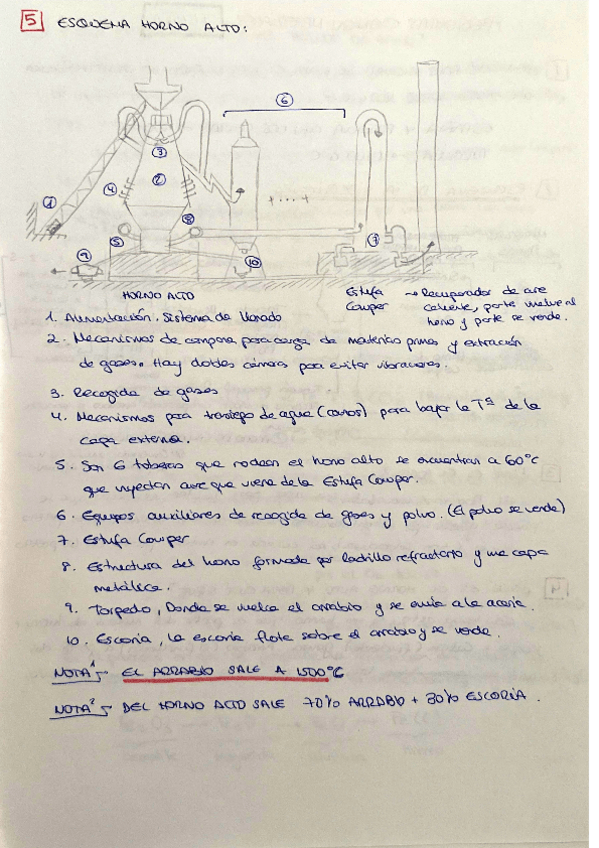 5 ESQUEMA HORNO ALTO:
6
3
2
4
1
+ .... +
8
5
7
9
10
HORNO ALTO
Estufa Cowper → Recuperador de aire
caliente, parte vuelve al
horno y parte se vende.
1. Alimentación. Sistema de llenado
2. Mecanismos de campana para carga de materias primas y extracción
de gases. Hay dobles cámaras para evitar vibraciones.
3. Recogida de gases
4. Mecanismos para trasiego de agua (canos) para bajar la Tª de la
capa externa.
5. Son 6 toberas que rodean el horno alto se encuentran a 60°C
que inyectan aire que viene de la Estufa Cowper.
6. Equipos auxiliares de recogida de gases y polvo. (El polvo se vende)
7. Estufa Cowper
8. Estructura del horno formada por ladrillo refractario y una capa
metálica.
9. Torpedo, Donde se vuelca el arrabio y se envia a la aceria.
10. Escoria, la escoria flota sobre el arrabio y se vende.
NOTA 1: EL ARRABIO SALE A 1500°C
NOTA 2: DEL HORNO ALTO SALE 70% ARRABIO + 30% ESCORIA.